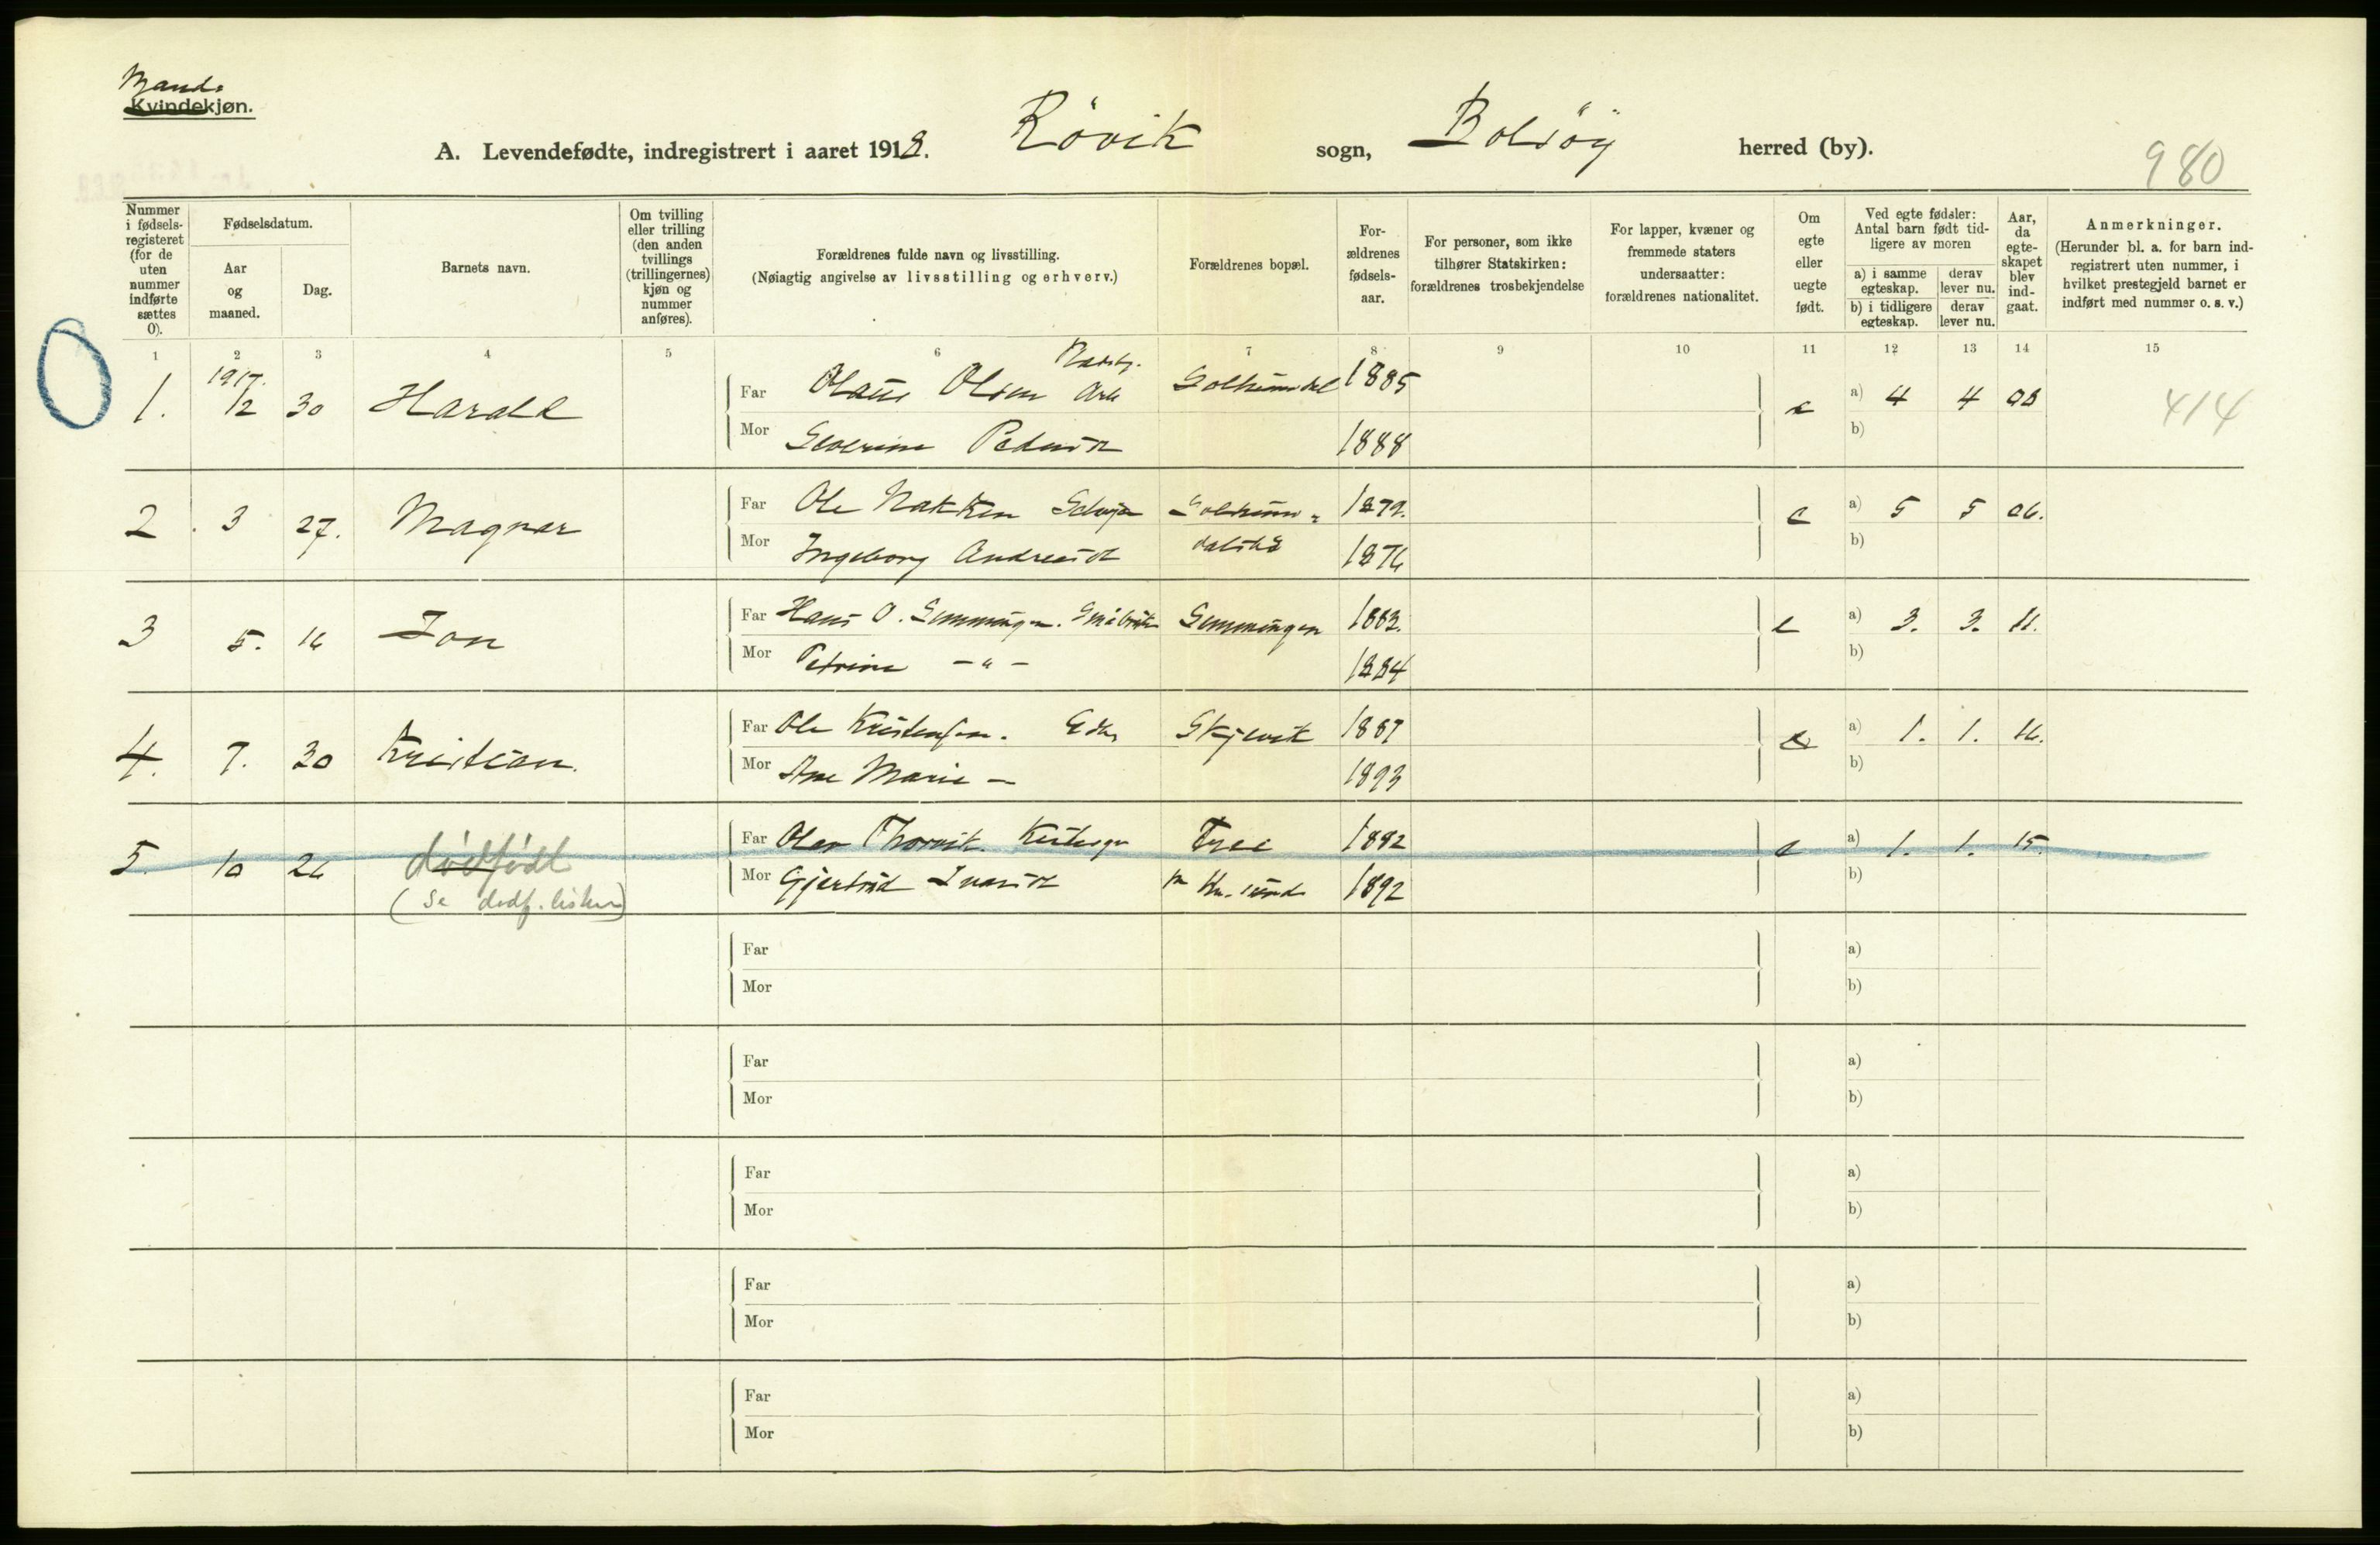 Mands
Kvindekjøn.
A. Levendefødte, indregistrert i aaret 1918. Rövik sogn, Bolsöy herred (by).
980
Nummer i fødsels-registeret (for de uten nummer indførte sættes 0).
Fødselsdatum.
Aar og maaned.
Dag.
Barnets navn.
Om tvilling eller trilling (den anden tvillings (trillingernes) kjøn og nummer anføres).
Forældrenes fulde navn og livsstilling.
(Nøiagtig angivelse av livsstilling og erhverv.)
Forældrenes bopæl.
For-ældrenes fødsels-aar.
For personer, som ikke tilhører Statskirken: forældrenes trosbekjendelse
For lapper, kvæner og fremmede staters undersaatter: forældrenes nationalitet.
Om egte eller uegte født.
Ved egte fødsler: Antal barn født tid-ligere av moren
a) i samme egteskap. derav lever nu.
b) i tidligere egteskap. derav lever nu.
Aar, da egte-skapet blev ind-gaat.
Anmerkninger.
(Herunder bl. a. for barn ind-registrert uten nummer, i hvilket prestegjeld barnet er indført med nummer o. s. v.)
1 2 3 4 5 6 7 8 9 10 11 12 13 14 15
1917
1. 12 30 Harald Far Olaus Olsen Arb 1885 e a) 4 4 08 414
Mor Severine Pedersd 1888 b)
2 3 27. Magnar Far Ole Nakken 1872. e a) 5 5 06.
Mor Ingeborg Andreasd 1876 b)
3 5. 16 Jon Far Hans O. Gemmingen. Småbruker Gemmingen 1883. e a) 3. 3. 11.
Mor Petrine - " - 1884 b)
4. 7. 30 Kristian. Far Ole Kristensen. Skjevik 1887 e a) 1. 1. 16.
Mor Ane Marie - 1893 b)
5. 10 26 dødfødt Far Olav Thorvik 1892 e a) 1. 1. 15.
(se dødf. listen) Mor Gjertrud Ivarsd pr Kr.sund 1892 b)
Far a)
Mor b)
Far a)
Mor b)
Far a)
Mor b)
Far a)
Mor b)
Far a)
Mor b)